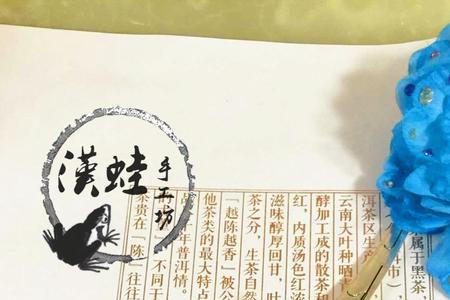 漢蛙
手工坊
属于黑茶
市）
洱茶区生产
云南大叶种晒
酵加工成的散茶
红，内质汤色红浓
滋味醇厚回甘，叶
茶之分，生茶自然
「越陈越香」被公
他茶类的最大特点
年普洱情。
不同于
茶贵在「陈」往往